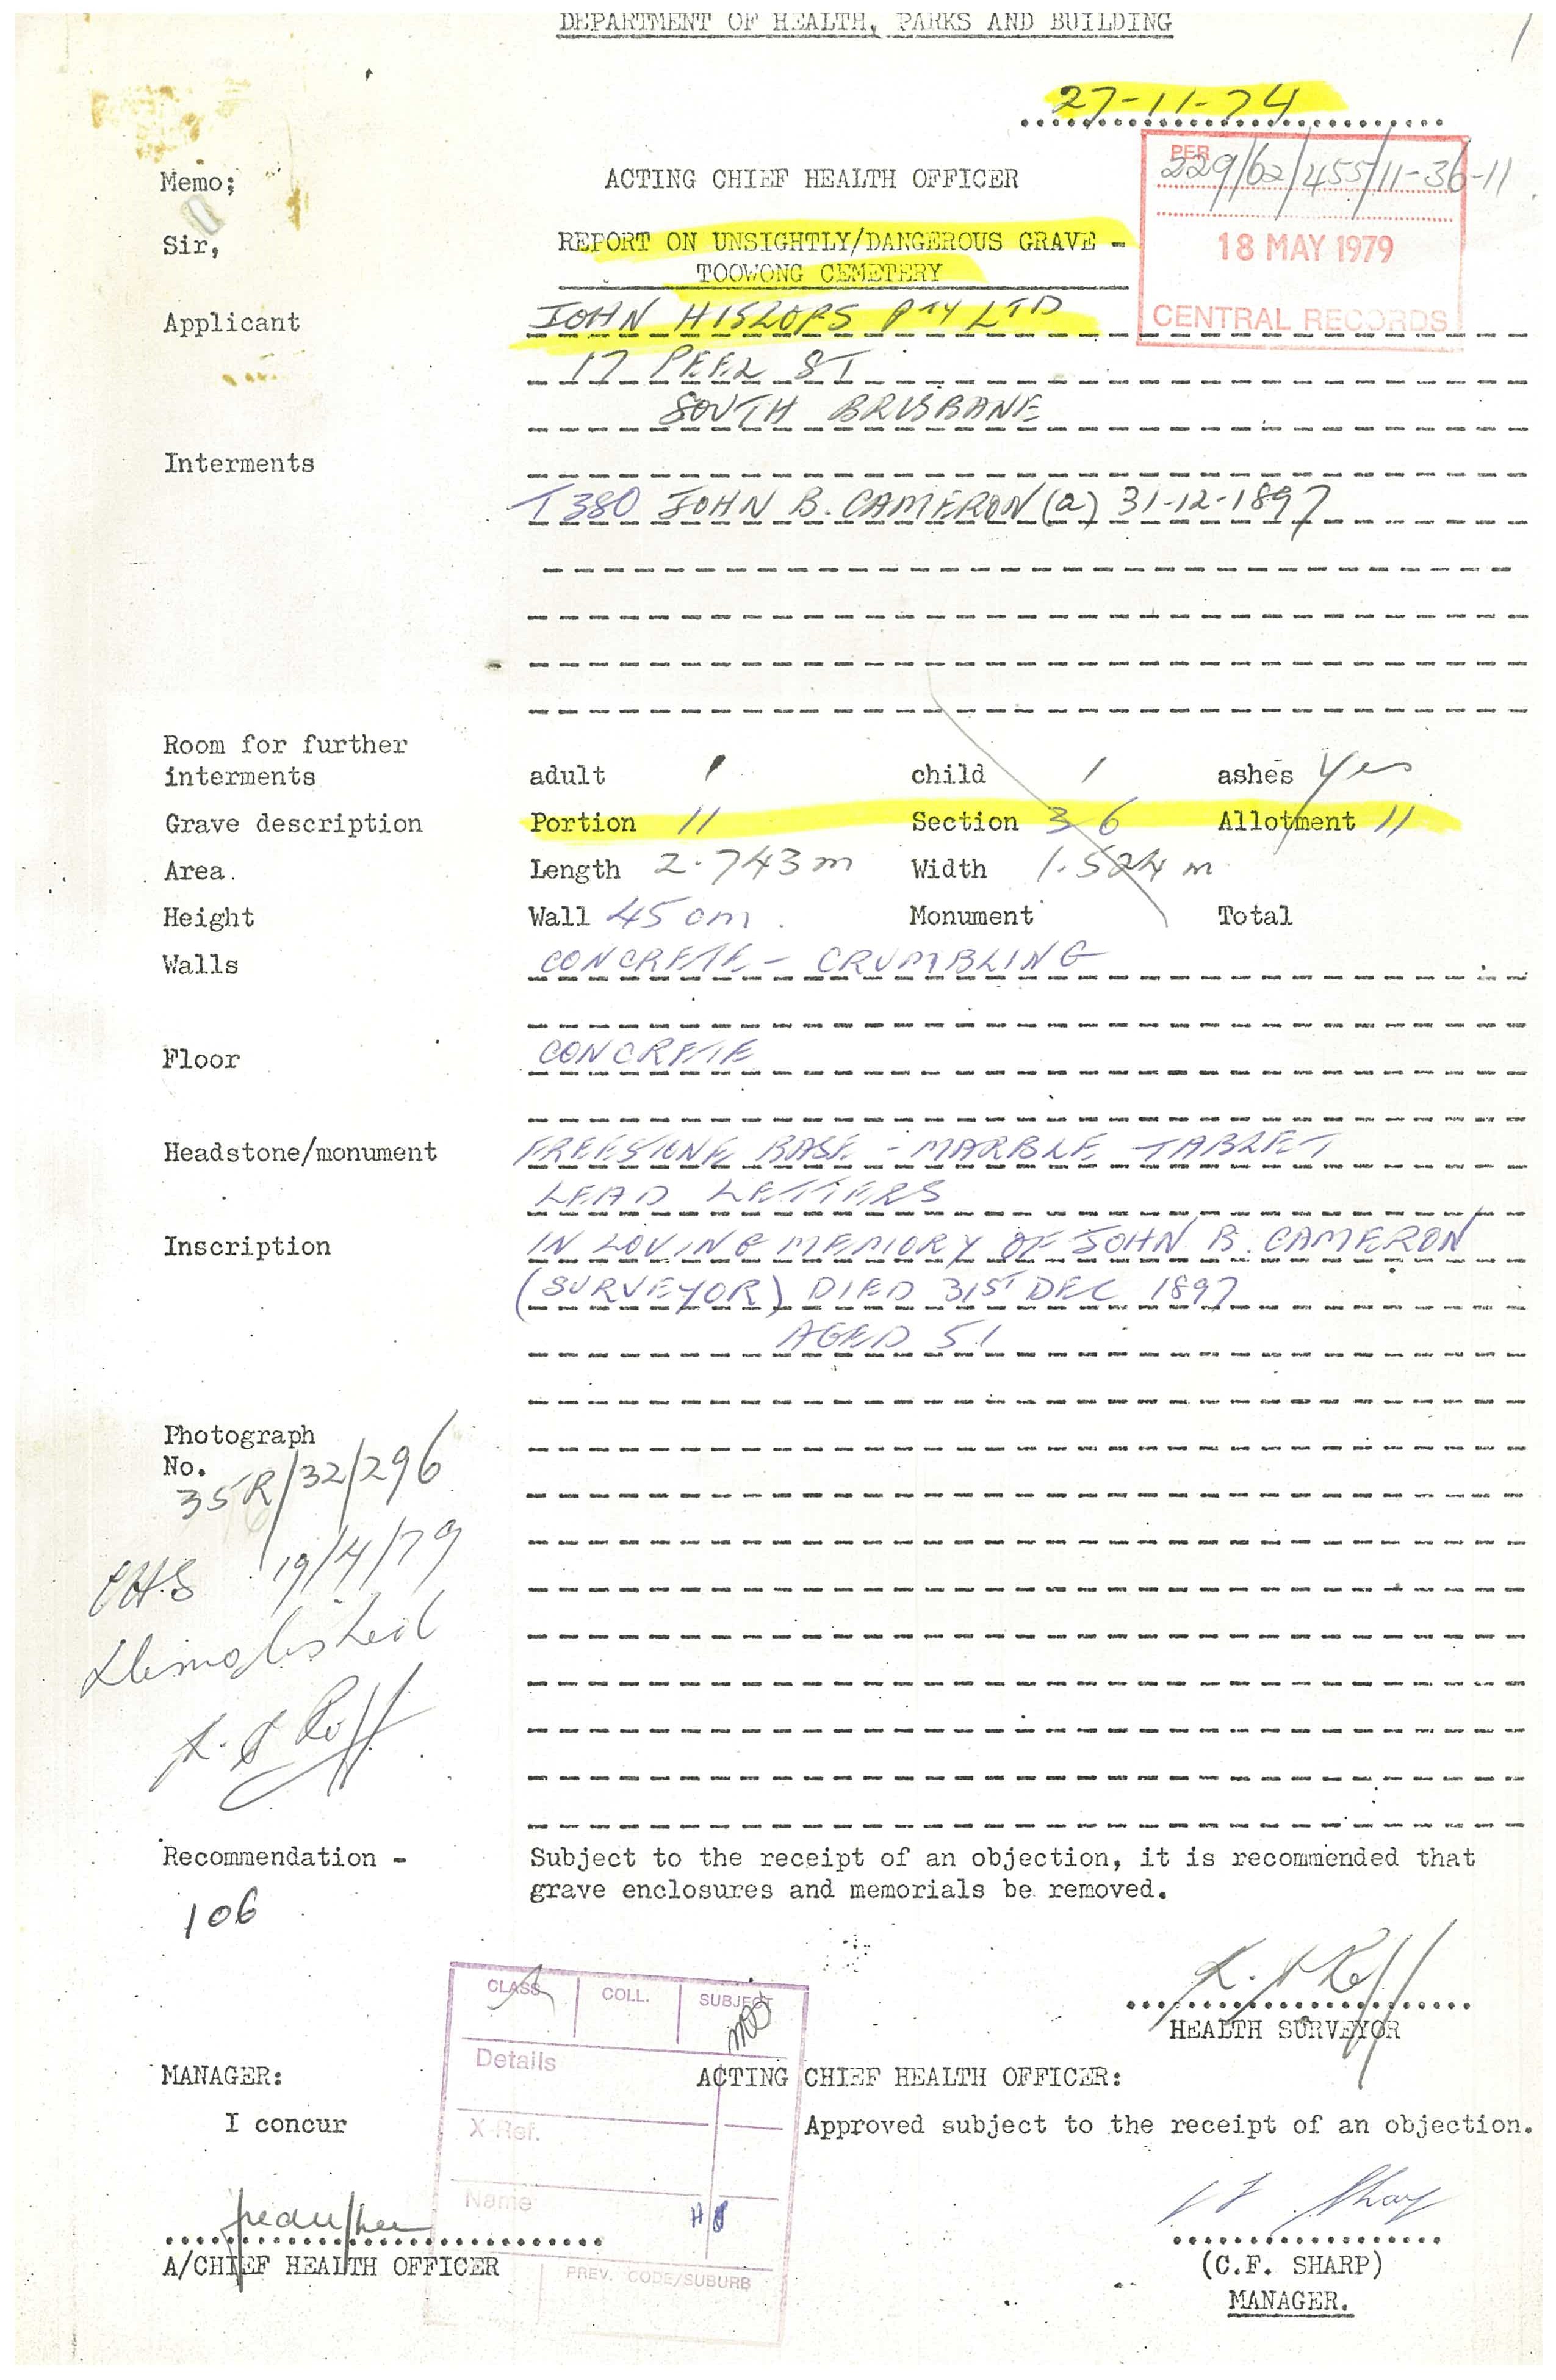 DEPARTMENT OF HEALTH, PARKS AND BUILDING
27-11-74
PER
229/62/455/11-36-11
18 MAY 1979
CENTRAL RECORDS
Memo; ACTING CHIEF HEALTH OFFICER
Sir, REPORT ON UNSIGHTLY/DANGEROUS GRAVE -
TOOWONG CEMETERY
Applicant JOHN HISLOPS PTY LTD
17 PEEL ST
SOUTH BRISBANE
Interments
T380 JOHN B. CAMERON (a) 31-12-1897
Room for further
interments adult 1 child 1 ashes Yes
Grave description Portion 11 Section 36 Allotment 11
Area. Length 2.743m Width 1.524 m
Height Wall 45 cm. Monument Total
Walls CONCRETE - CRUMBLING
Floor CONCRETE
Headstone/monument FREESTONE BASE - MARBLE TABLET
LEAD LETTERS
Inscription IN LOVING MEMORY OF JOHN B. CAMERON
(SURVEYOR) DIED 31ST DEC 1897
AGED 51
Photograph
No.
35R/32/296
19/4/79
Demolished
Recommendation - Subject to the receipt of an objection, it is recommended that
grave enclosures and memorials be removed.
106
HEALTH SURVEYOR
CLASS COLL. SUBJECT
Details
X-Ref.
Name
PREV. CODE/SUBURB
MANAGER: ACTING CHIEF HEALTH OFFICER:
I concur Approved subject to the receipt of an objection.
A/CHIEF HEALTH OFFICER (C.F. SHARP)
MANAGER.